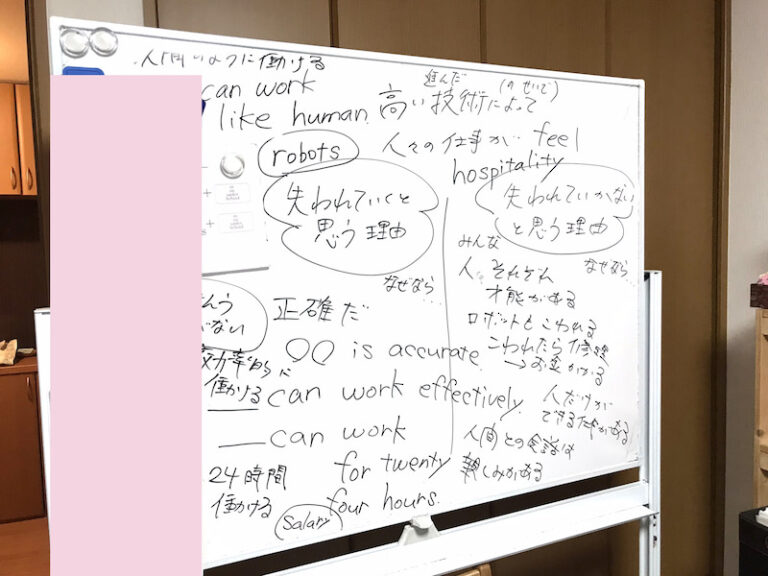 人間のように働ける
can work
like human.
進んだ (のせいで)
高い技術によって
人々の仕事が
feel
hospitality
robots
失われていくと
思う理由
なぜなら
正確だ
〇〇 is accurate.
効率的に
働ける
can work effectively.
can work
for twenty
four hours.
24時間
働ける
salary
失われていかない
と思う理由
なぜなら
みんな
人 それぞれ
才能がある
ロボットだとこわれる
こわれたら修理
→お金がかかる
人だけが
できる仕事がある
人間との会話は
親しみがある